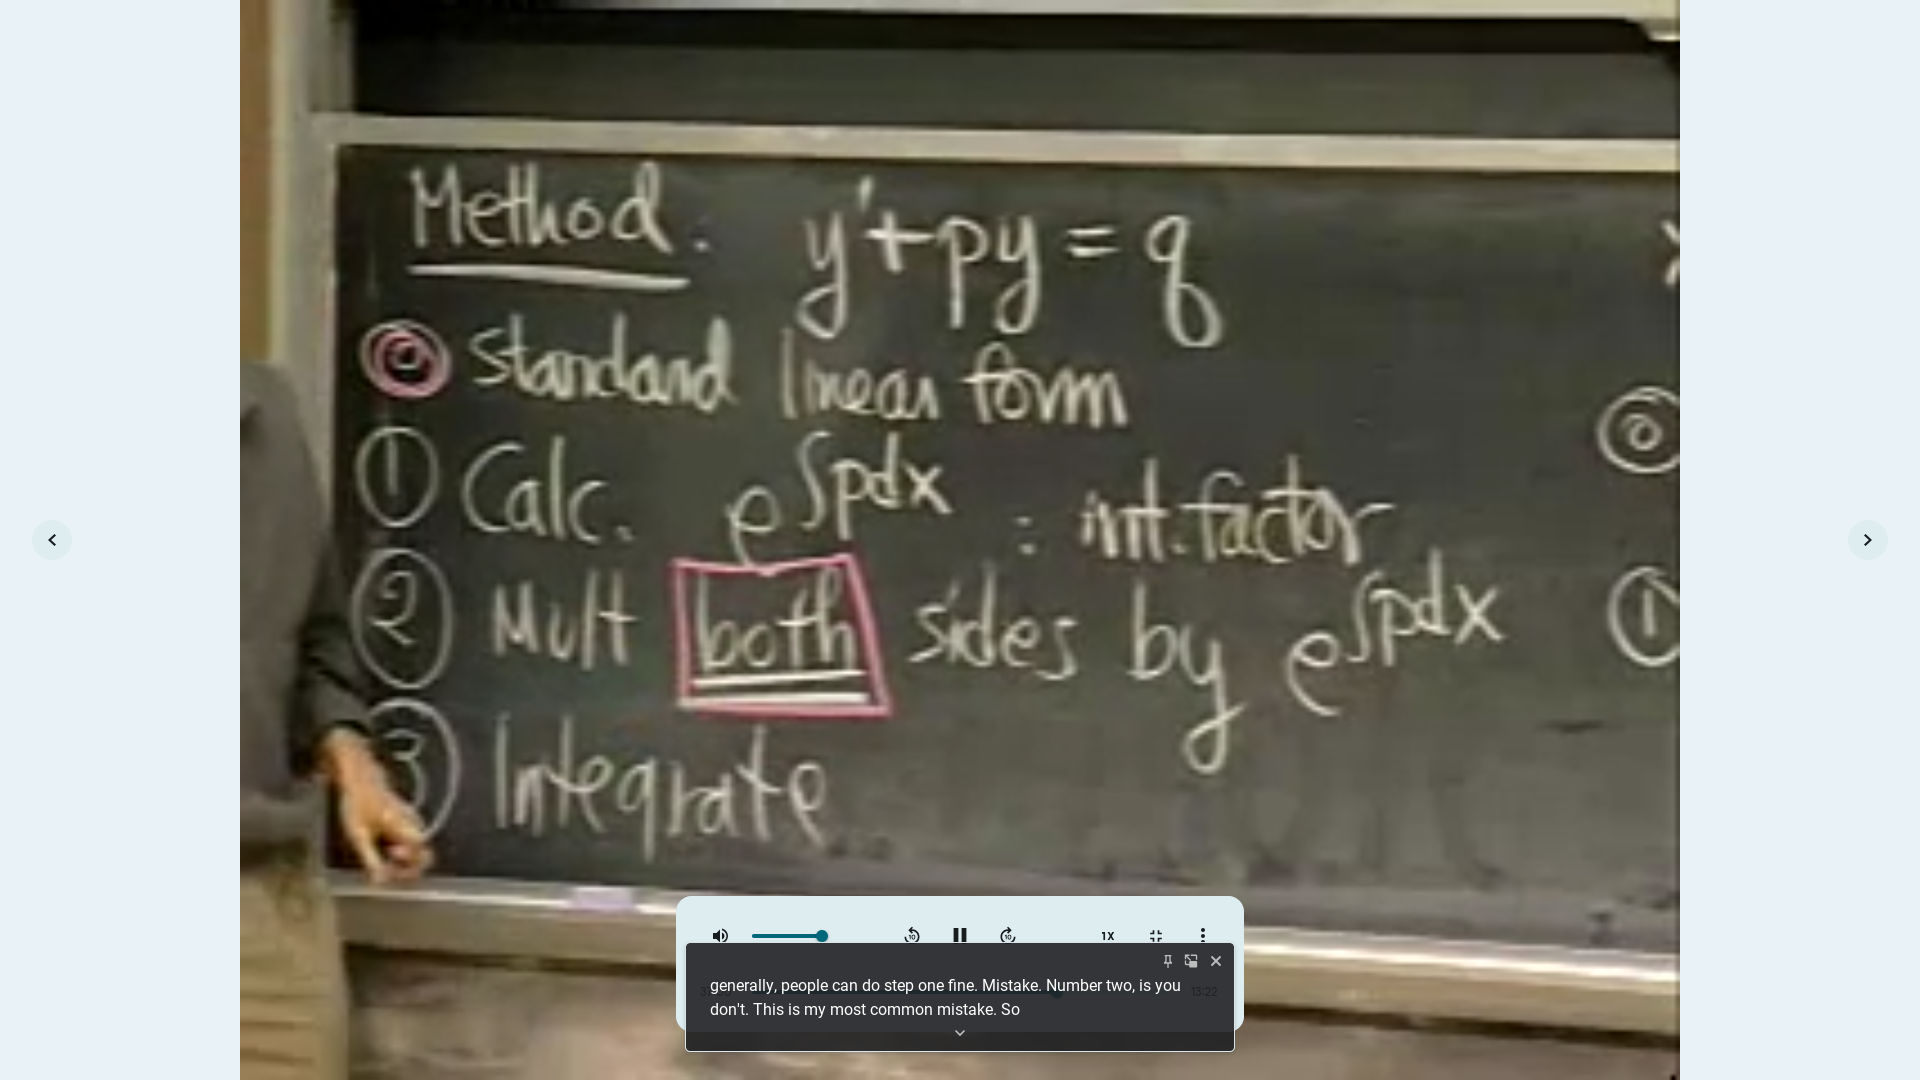 Method. y'+py = q
⓪ Standard linear form
① Calc. e^∫pdx : int. factor
② Mult both sides by e^∫pdx
③ Integrate
⓪
①
10
10
1X
13:22
generally, people can do step one fine. Mistake. Number two, is you
don't. This is my most common mistake. So